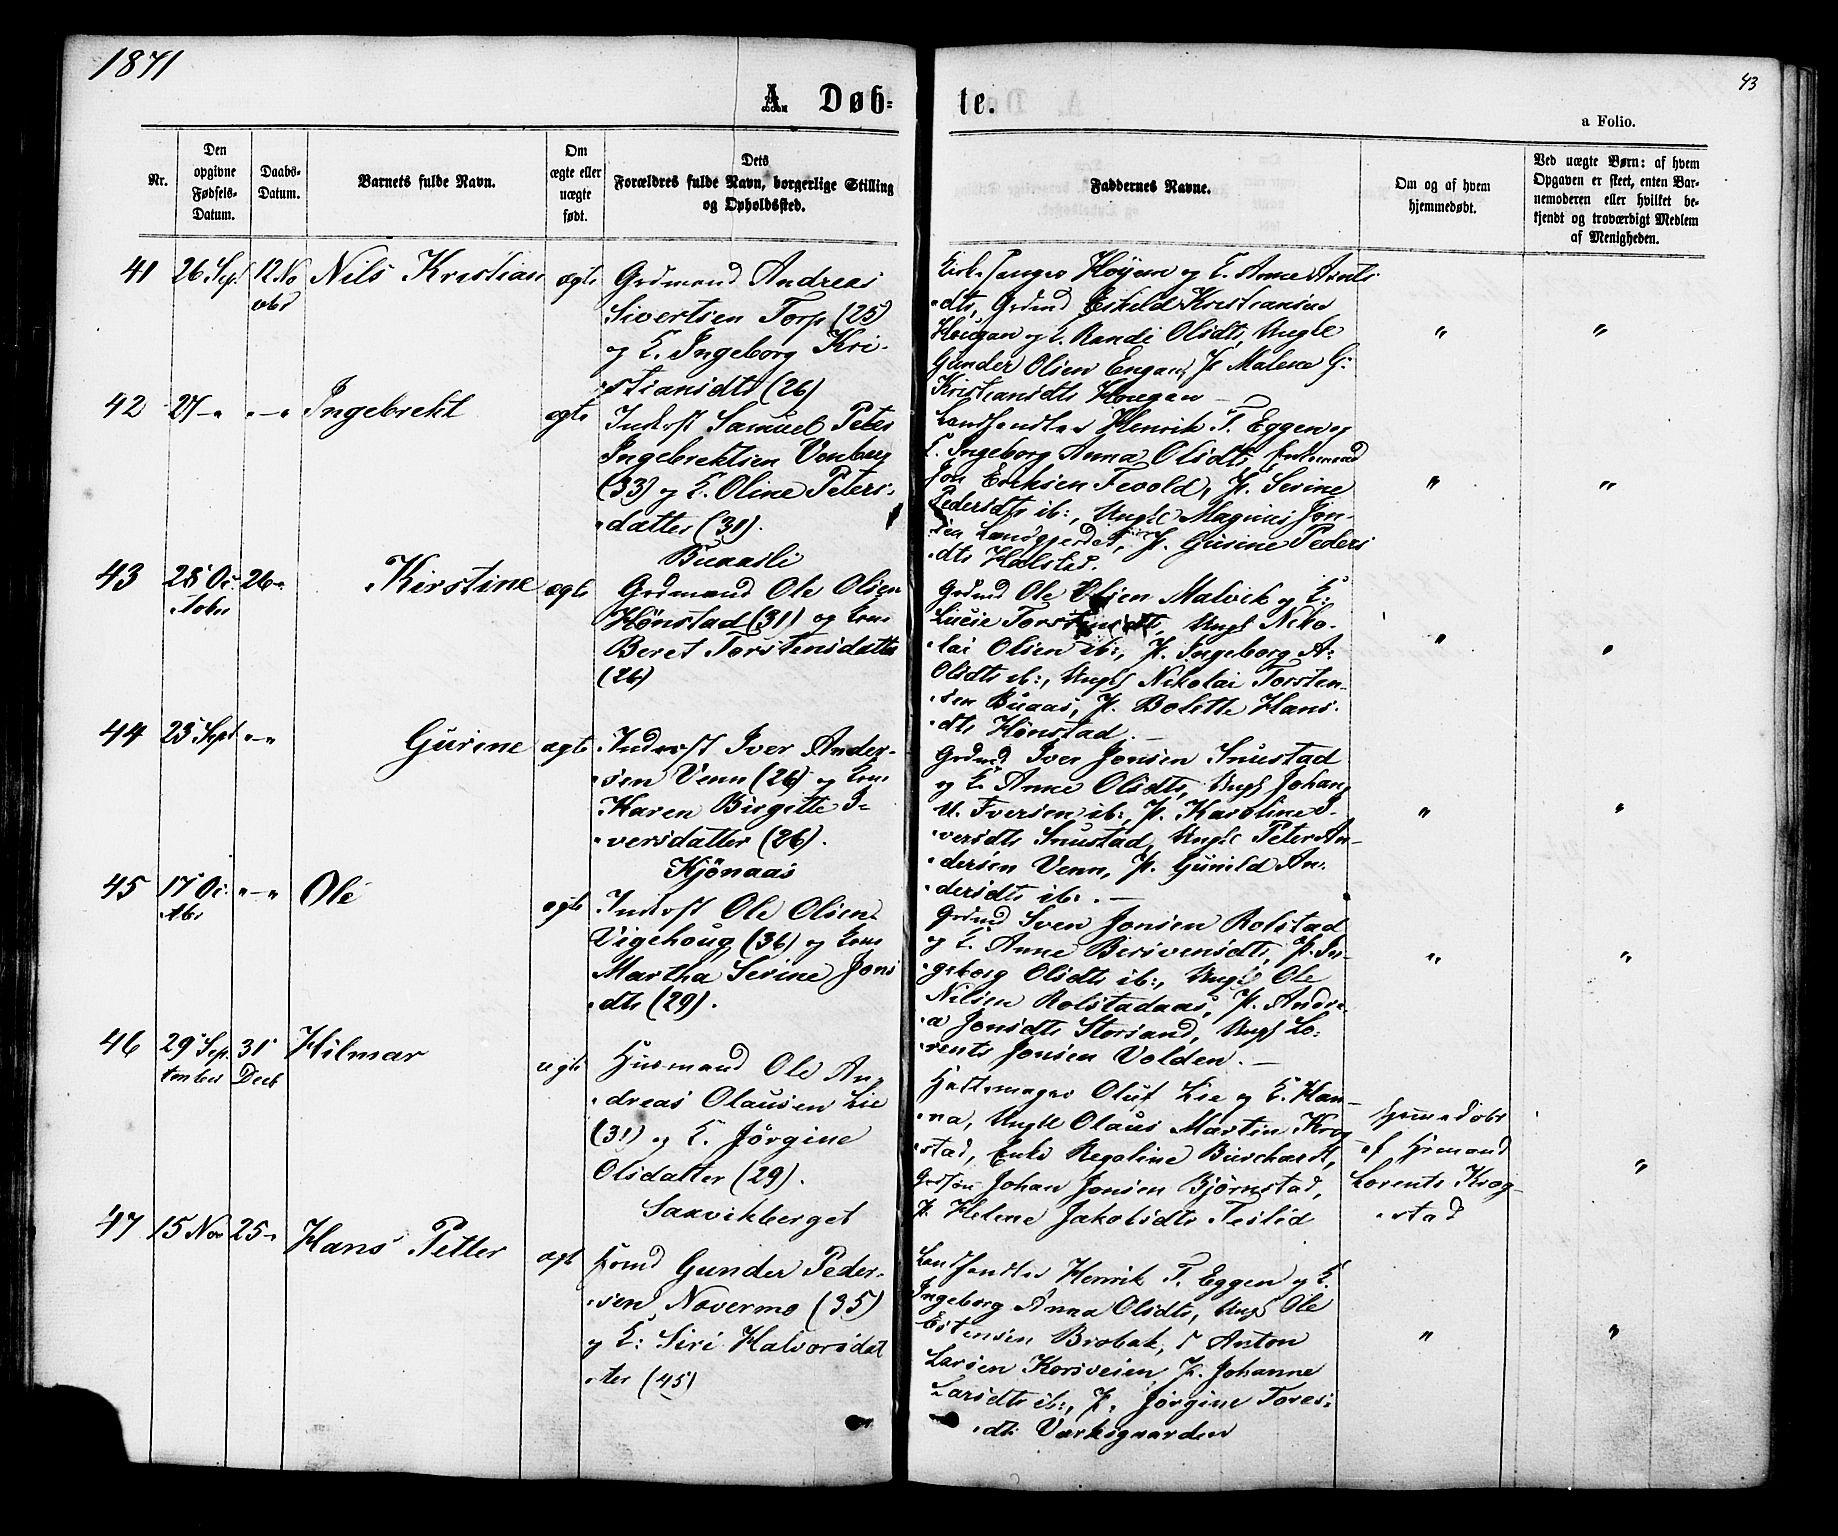 1871
43
A. Døb-
te.
a Folio.
Nr.
Den
opgivne
Fødsels-
Datum.
Daabs-
Datum.
Barnets fulde Navn.
Om
ægte eller
uægte
født.
Dets
Forældres fulde Navn, borgerlige Stilling
og Opholdssted.
Faddernes Navne.
Om og af hvem
hjemmedøbt.
Ved uægte Børn: af hvem
Opgaven er skeet, enten Bar-
nemoderen eller hvilket be-
kjendt og troværdigt Medlem
af Menigheden.
41 26 Sep. 12 No
vbr
Nils Kristian
ægte
Grdmand Andreas
Sivertsen Torp (25)
og E. Ingeborg Kri-
stiansdtr (26)
Høyem og E. Anne Arnts
dtr, Grdmd Eskild Kristiansen
Hougan og E. Randi Olsdtr, Ungk
Gunder Olsen Engan, P. Malene G.
Kristiansdtr Hougan —
" "
42 27 —" "—" Ingebrekt
ægte
Indrost Samuel Peter
Ingebrektsen Venberg
(33) og E. Oline Peters-
datter (31).
Buaasli
Landhandler Henrik T. Eggen og
E. Ingeborg Anna Olsdtr, Enkemand
Jon Eriksen Fevold, P. Serine
Pedersdtr ib:, Ungk Magnus Jon-
sen, P. Gusine Peders
dtr Halsted.
" "
43 28 Oc. 26 —"
tober
Kirstine
ægte
Grdmand Ole Olsen
Hønstad (31) og Kone
Beret Torstensdatter
(26)
Grdmd Ole Olsen Malvik og E:
Lucie Torstensdtr, Ungk Niko-
lai Olsen ib:, P. Ingeborg A:
Olsdtr ib:, Ungk Nikolai Torsten-
sen Buaas, P. Bolette Hans-
dtr Hønstad. —
" "
44 23 Sept "—"
Gurine
ægte
Indrost Iver Ander-
sen Venn (26) og Kone
Karen Birgitte I-
versdatter (26).
Kjønaas
Grdmd Iver Jonsen Snustad
og E Anne Olsdtr, Ungk Johan
M. Iversen ib:, P. Karoline I-
versdtr Snustad, Ungk Peter An-
dersen Venn, P. Gunild An-
dersdtr ib:. —
" "
45 17 Oc. "—" Ole
tbr
ægte
Indrost Ole Olsen
Vigehoug (36) og Kone
Martha Serine Jons
dtr (29).
Grdmd Sven Jonsen Rolstad
og E. Anne Bersvensdtr, P. In-
geborg Olsdtr ib:, Ungk Ole
Nilsen Rolstadaas, P. Andre-
a Jonsdtr Storsand, Ungk Lo-
rents Jonsen Volden. —
" "
46 29 Sep. 31 Hilmar
tember Decb
ægte
Husmand Ole An-
dreas Olausen Lie
(31) og E. Jörgine
Olsdatter (29).
Saxvikberget
Hattemager Oluf Lie og E. Han-
na, Ungk Olaus Martin Krog
stad, Enke Regoline Burchardt,
Grdsøn Johan Jonsen Bjørnstad,
P. Helene Jakobsdtr Teslid
Hjemmedøbt
af Husmand
Lorents Krog-
stad
"
47 15 Nov 25 —" Hans Petter
ægte
Grdmd Gunder Peder-
sen Novermo (35)
og E: Siri Halvorsdat
ter (45)
Landhandler Henrik T. Eggen og E.
Ingeborg Anna Olsdtr, Ungk Ole
Estensen Brobak, Anton
Larsen Korsveien, P. Johanne
Larsdtr ib:, P. Jørgine Tores-
dtr Værksgaarden
" "